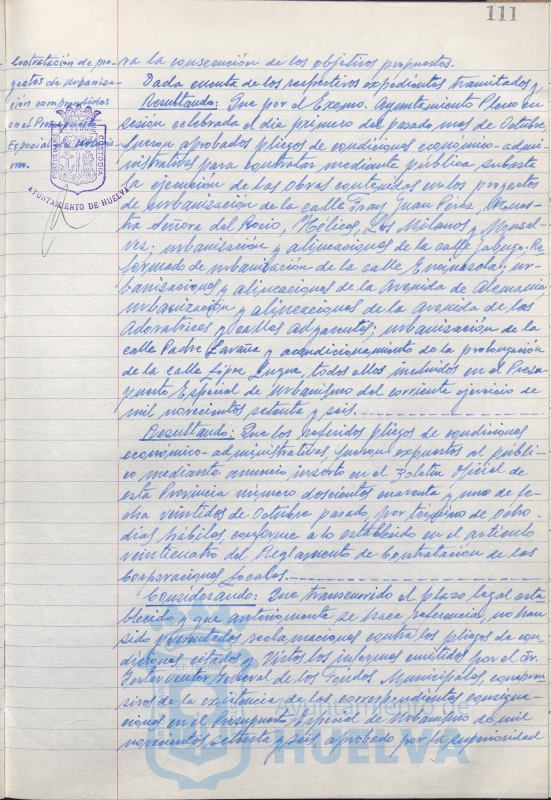 111
Contratación de pro-
yectos de urbaniza-
ción comprendidos
en el Presupuesto
Especial de Urbanis-
mo.
AYUNTAMIENTO DE HUELVA
ra la consecución de los objetivos propuestos.
Dada cuenta de los respectivos expedientes tramitados y
Resultando: Que por el Excmo. Ayuntamiento Pleno en
sesión celebrada el día primero del pasado mes de Octubre,
fueron aprobados pliegos de condiciones económico-admi-
nistrativas para contratar mediante pública subasta
la ejecución de las obras contenidas en los proyectos
de urbanización de la calle Fray Juan Pérez, Nues-
tra Señora del Rocío, Mélicos, Los Milanos y Monsal-
vez; urbanización y alineaciones de la calle Jabugo. Re-
formado de urbanización de la calle Encinasola; ur-
banizaciones y alineaciones de la Avenida de Alemania,
urbanización y alineaciones de la avenida de las
Adoratrices y calles adyacentes; urbanización de la
calle Padre Laraña y acondicionamiento de la prolongación
de la calle López Luque, todos ellos incluidos en el Presu-
puesto Especial de Urbanismo del corriente ejercicio de
mil novecientos setenta y seis.
Resultando: Que los referidos pliegos de condiciones
económico-administrativas, fueron expuestos al públi-
co mediante anuncio inserto en el Boletín Oficial de
esta Provincia número doscientos cuarenta y uno de fe-
cha veintidos de Octubre pasado, por término de ocho
días hábiles, conforme a lo establecido en el artículo
veinticuatro del Reglamento de Contratación de las
Corporaciones Locales.
Considerando: Que transcurrido el plazo legal esta-
blecido y que anteriormente se hace referencia, no han
sido presentadas reclamaciones contra los pliegos de con-
diciones citados y Vistos los informes emitidos por el Sr.
Interventor General de los Fondos Municipales, comprens-
ivos de la existencia de las correspondientes consigna-
ciones en el Presupuesto Especial de Urbanismo de mil
novecientos setenta y seis, aprobado por la superioridad
Ayuntamiento de
HUELVA